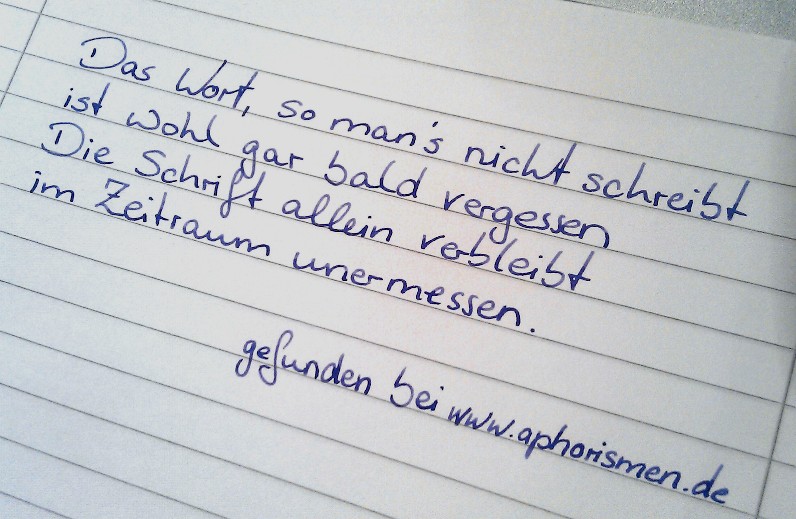 Das Wort, so man's nicht schreibt
ist wohl gar bald vergessen
Die Schrift allein verbleibt
im Zeitraum unermessen.
gefunden bei www.aphorismen.de